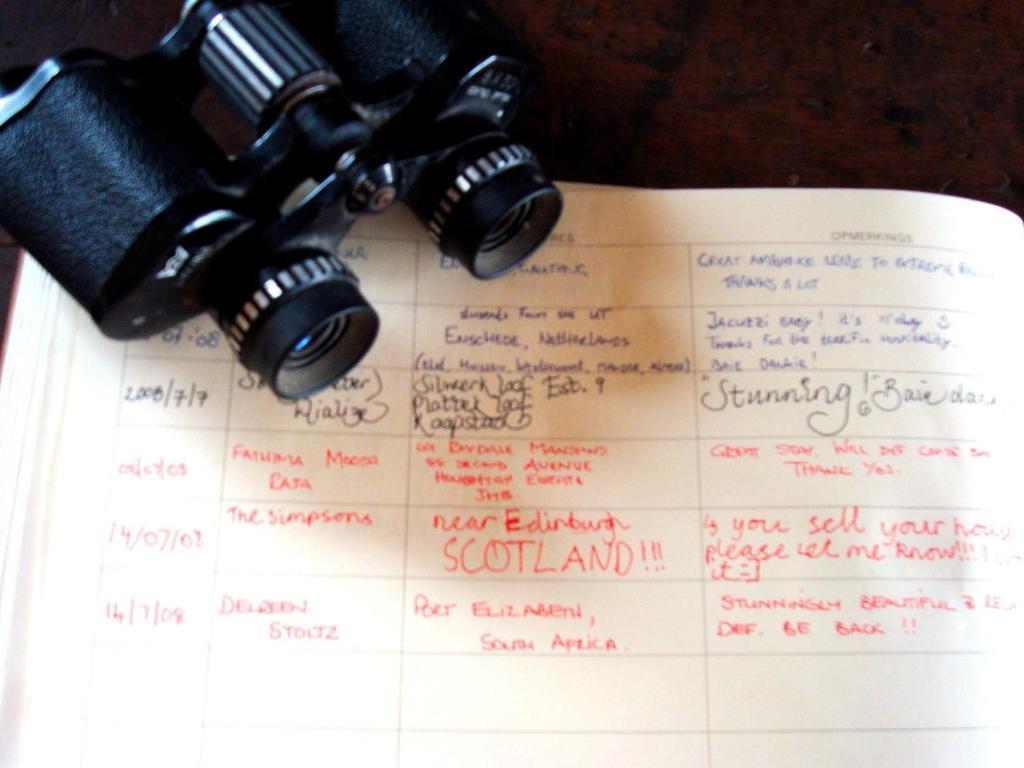 OPMERKINGS
GREAT AMBIENCE
THANKS A LOT
students From the UT
ENSCHEDE, NETHERLANDS
07-'08
JACUZZI BABY! it's n'dway
THANKS FOR the terrific Hospitality.
BAIE DANKIE!
2008/7/7
Dialize
Silwerk loof Est. 9
Platter loof
Kaapstad
"Stunning!" Baie
FATHIMA MOOSA
RAJA
MANSIONS
SECOND AVENUE
HOUGHTON ESTATE
JHB
GREAT STAY. WILL DEF COME
THANK YOU.
14/07/08
The Simpsons
near Edinburgh
SCOTLAND!!!
you sell your hous
please let me know!!!!
it =]
14/7/08
DELREEN
STOLTZ
PORT ELIZABETH,
SOUTH AFRICA.
STUNNINGLY BEAUTIFUL & RE
DEF. BE BACK !!